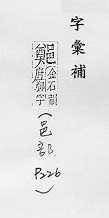 字彙補
金石韻
府
字
(邑部
P226)